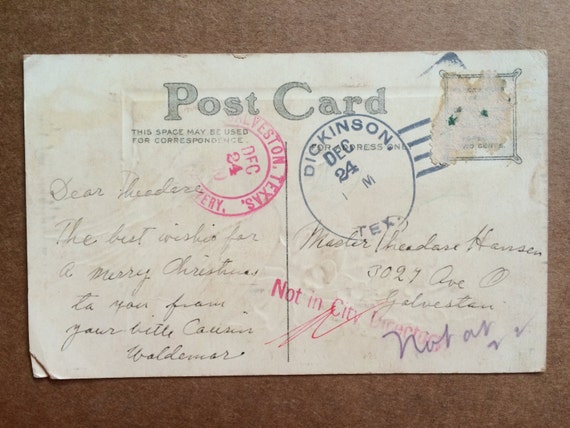 Post Card
THIS SPACE MAY BE USED
FOR CORRESPONDENCE
FOR ADDRESS ONLY
GALVESTON, TEXAS.
DEC
24
DICKINSON,
DEC
24
M
TEX.
Dear Theodore
The best wishes for
a merry Christmas
to you from
your little Cousin
Waldemar
Master Theodore Hansen
3027 Ave O
Galveston
Not in City Directory
Not at